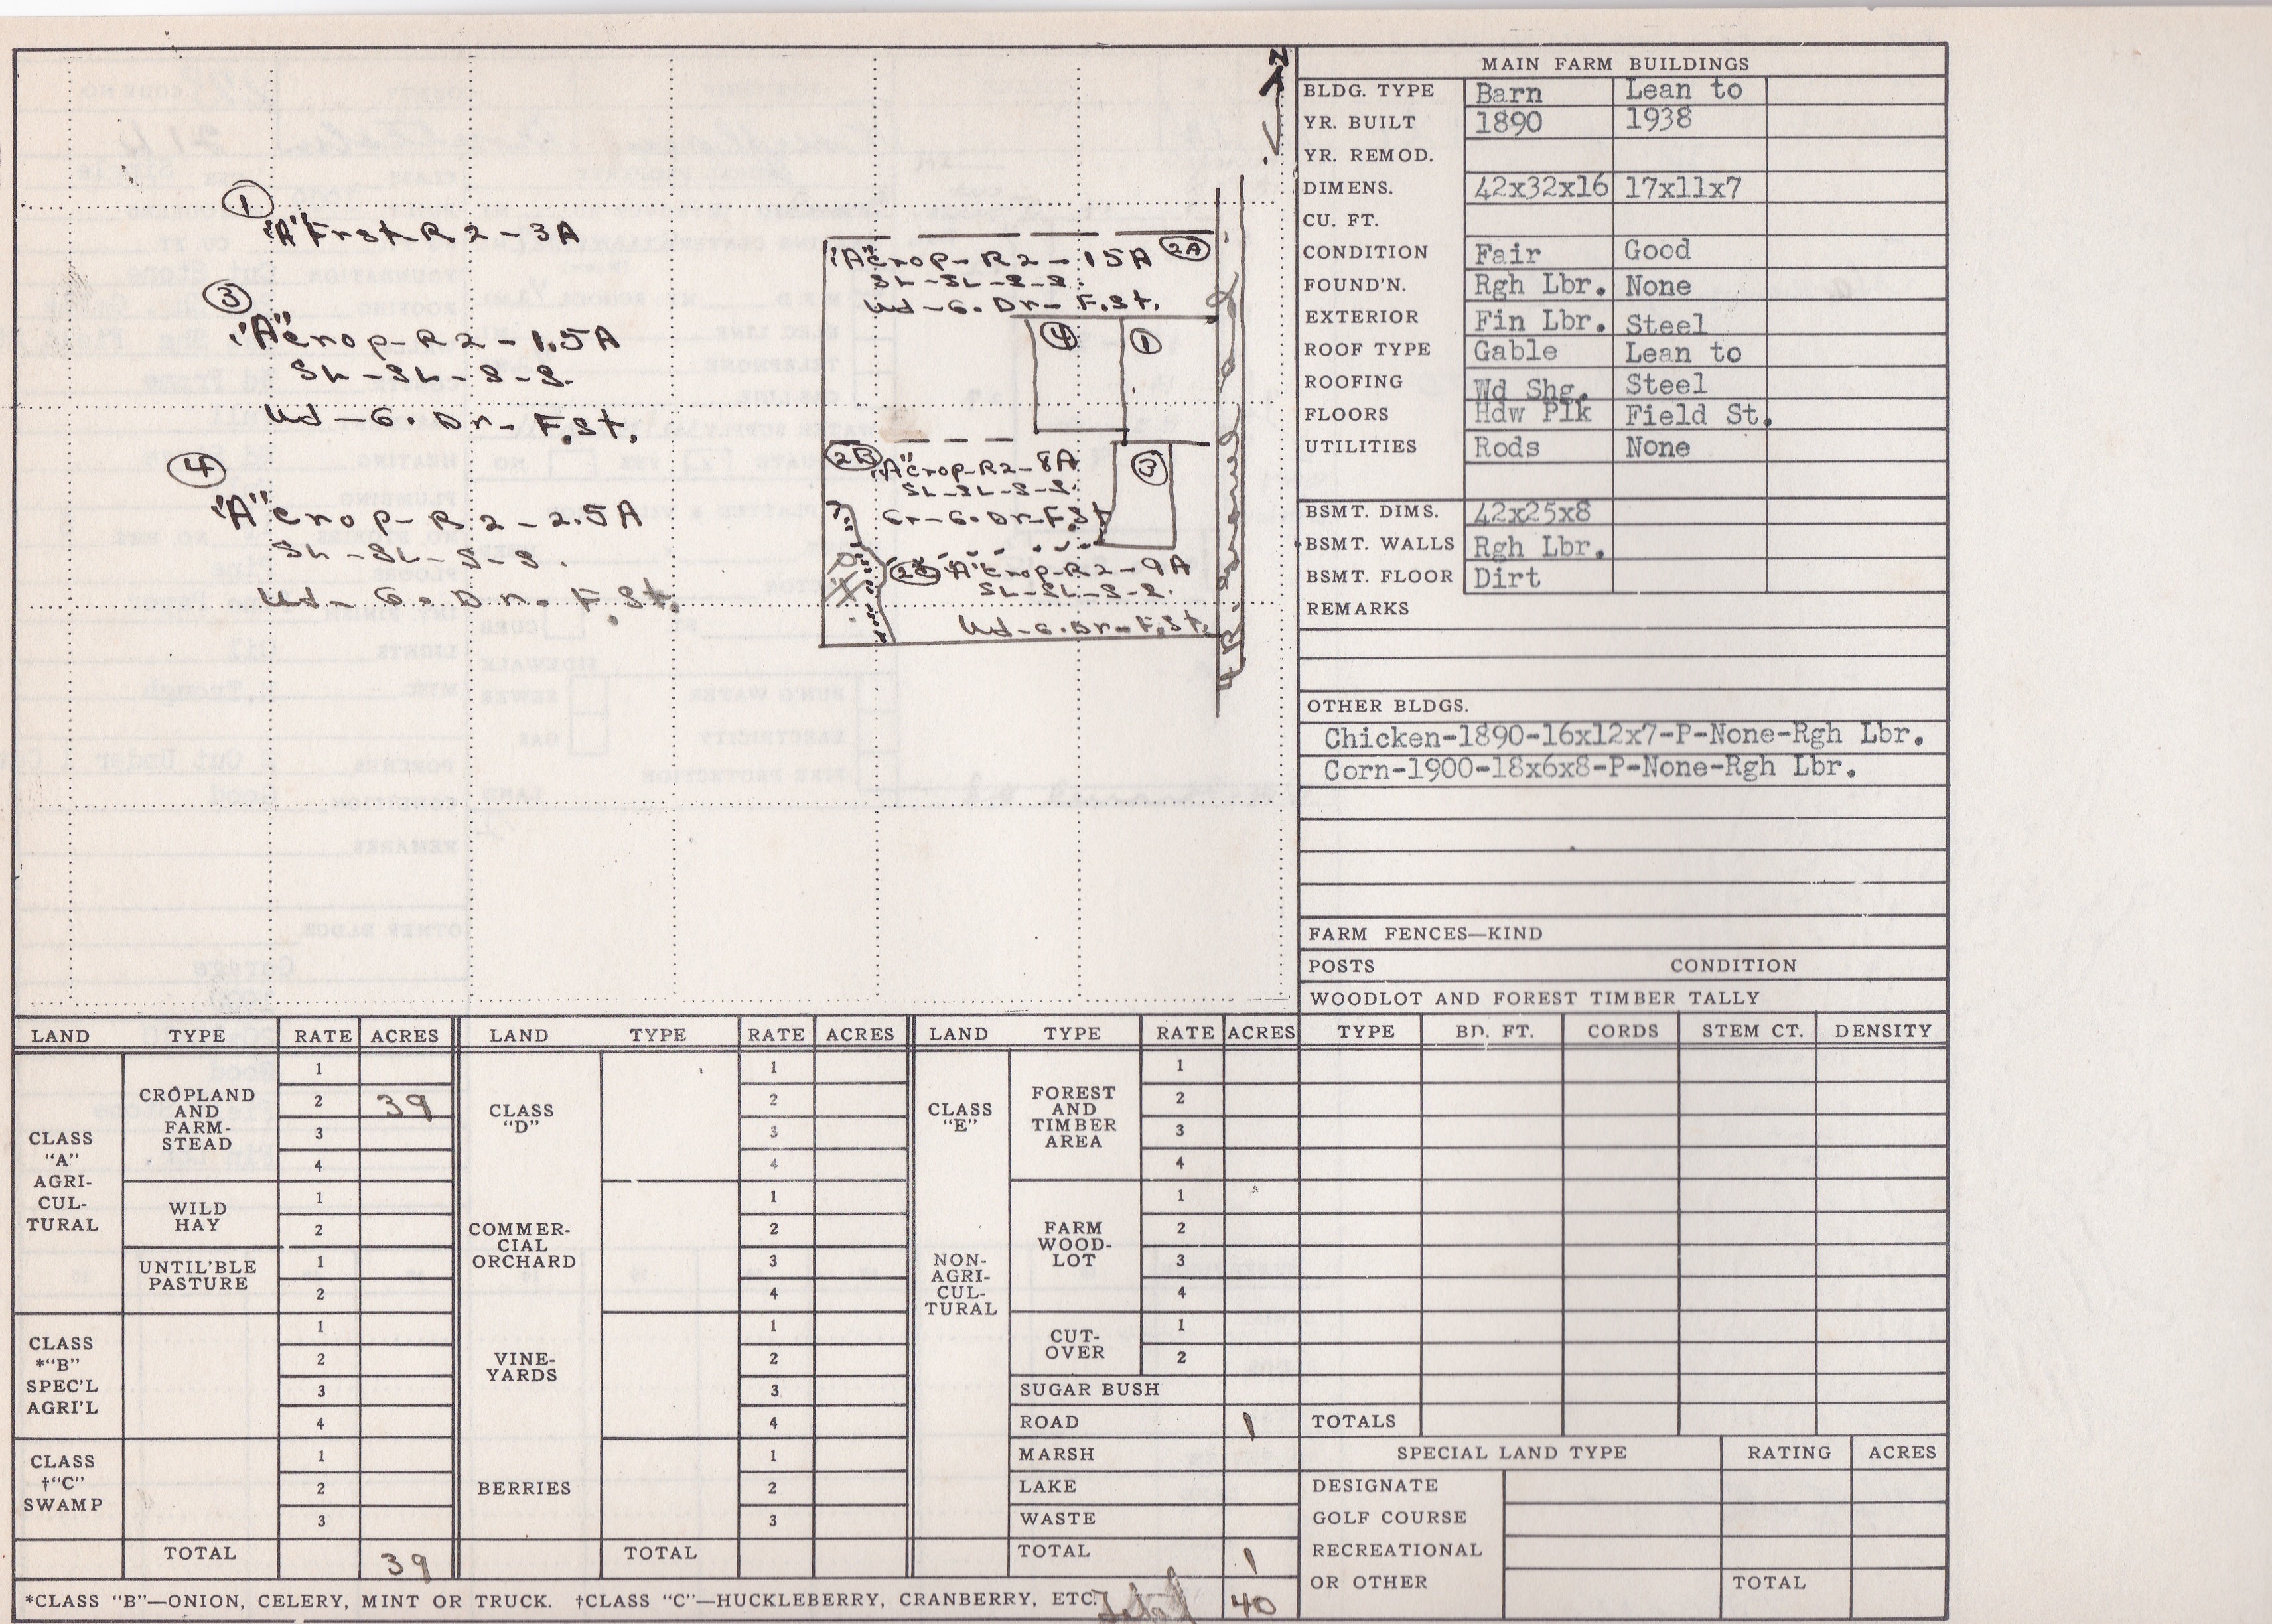 N
1
"A" Frst-R2-3A
3
"A" Crop-R2-1.5A
SL-SL-S-S.
Ud-G.Dr-F.St.
4
"A" Crop-R2-2.5A
SL-SL-S-S.
Ud-G.Dr.F.St.
"A" Crop-R2-15A 2A
SL-SL-S-S.
Ud-G.Dr-F.St.
4 1
2B "A" Crop-R2-8A
SL-SL-S-S.
3
Gr-G.Dr-F.St
"A" Crop-R2-9A
SL-SL-S-S.
Ud-G.Dr-F.St.
MAIN FARM BUILDINGS
BLDG. TYPE Barn Lean to
YR. BUILT 1890 1938
YR. REMOD.
DIMENS. 42x32x16 17x11x7
CU. FT.
CONDITION Fair Good
FOUND'N. Rgh Lbr. None
EXTERIOR Fin Lbr. Steel
ROOF TYPE Gable Lean to
ROOFING Wd Shg. Steel
FLOORS Hdw Plk Field St.
UTILITIES Rods None
BSMT. DIMS. 42x25x8
BSMT. WALLS Rgh Lbr.
BSMT. FLOOR Dirt
REMARKS
OTHER BLDGS.
Chicken-1890-16x12x7-P-None-Rgh Lbr.
Corn-1900-18x6x8-P-None-Rgh Lbr.
FARM FENCES—KIND
POSTS CONDITION
WOODLOT AND FOREST TIMBER TALLY
TYPE BD. FT. CORDS STEM CT. DENSITY
TOTALS
SPECIAL LAND TYPE RATING ACRES
DESIGNATE
GOLF COURSE
RECREATIONAL
OR OTHER TOTAL
LAND TYPE RATE ACRES
CLASS
"A"
AGRI-
CUL-
TURAL
CROPLAND
AND
FARM-
STEAD
1
2 39
3
4
WILD
HAY
1
2
UNTIL'BLE
PASTURE
1
2
CLASS
*"B"
SPEC'L
AGRI'L
1
2
3
4
CLASS
†"C"
SWAMP
1
2
3
TOTAL 39
LAND TYPE RATE ACRES
CLASS
"D"
1
2
3
4
COMMER-
CIAL
ORCHARD
1
2
3
4
VINE-
YARDS
1
2
3
4
BERRIES
1
2
3
TOTAL
LAND TYPE RATE ACRES
CLASS
"E"
NON-
AGRI-
CUL-
TURAL
FOREST
AND
TIMBER
AREA
1
2
3
4
FARM
WOOD-
LOT
1
2
3
4
CUT-
OVER
1
2
SUGAR BUSH
ROAD 1
MARSH
LAKE
WASTE
TOTAL 1
*CLASS "B"—ONION, CELERY, MINT OR TRUCK. †CLASS "C"—HUCKLEBERRY, CRANBERRY, ETC. Total 40